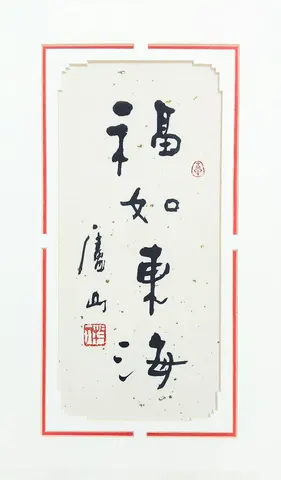 福如東海
廬山